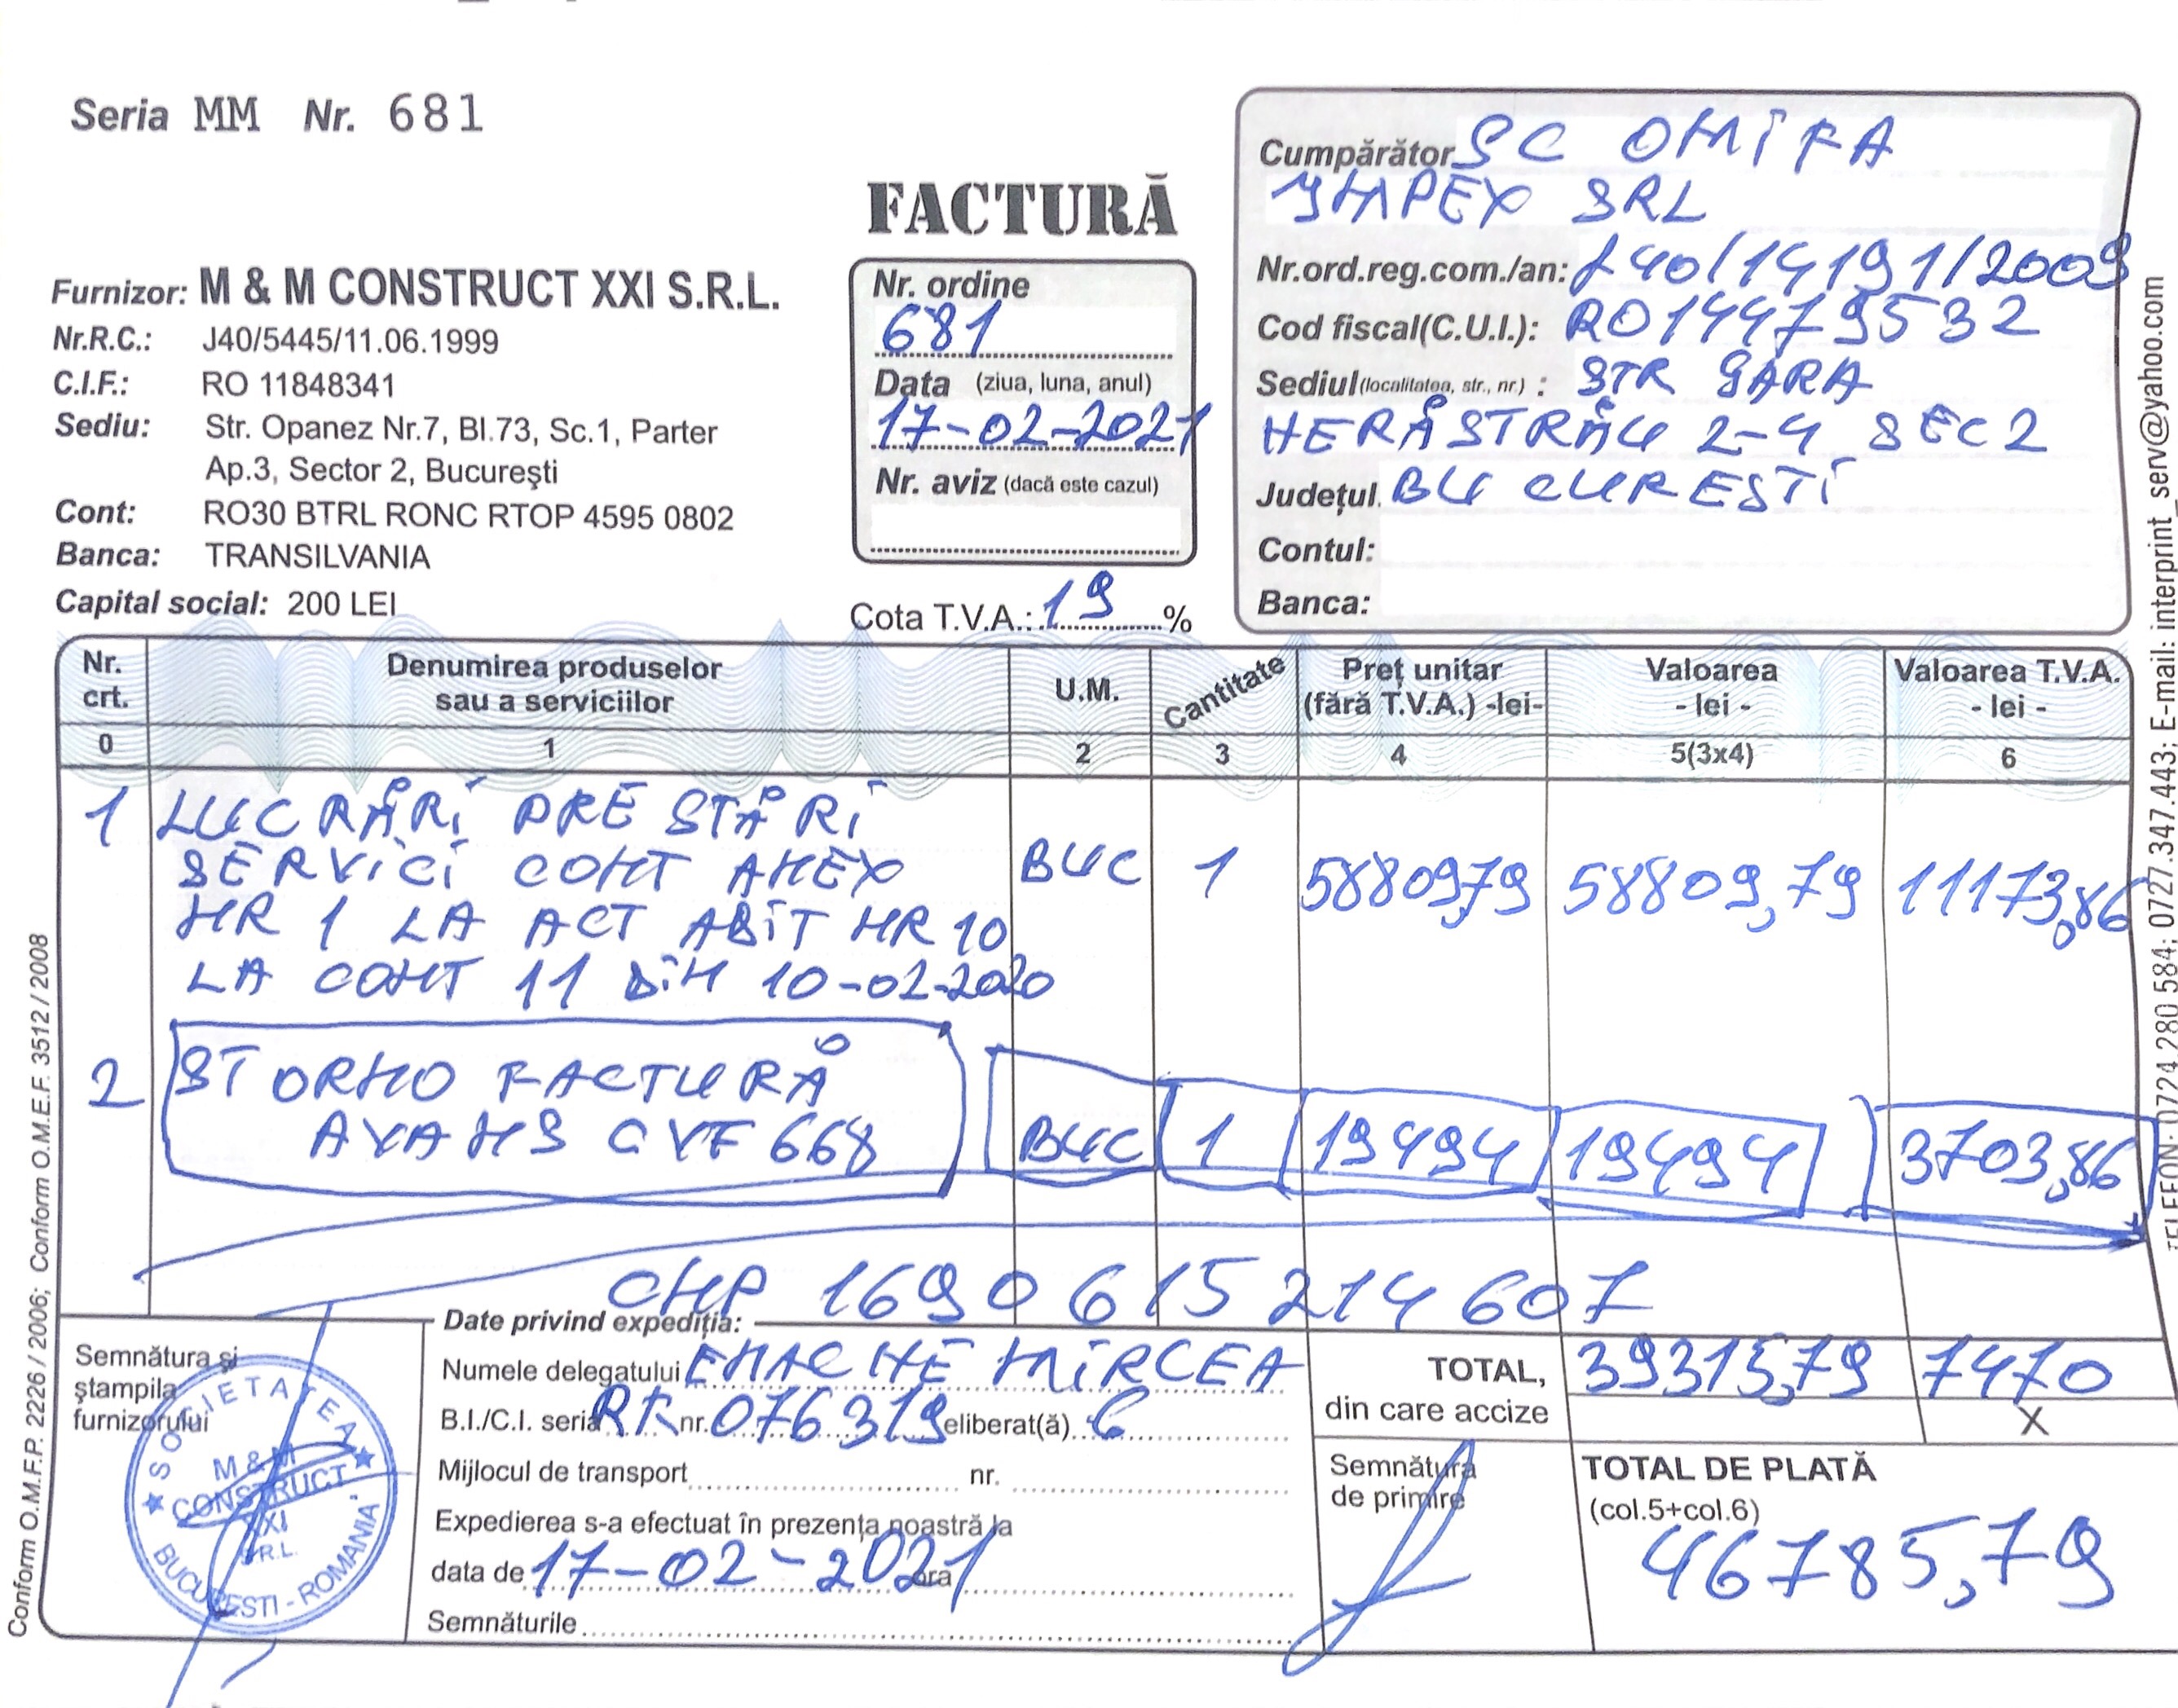 Seria MM Nr. 681
FACTURĂ
Furnizor: M & M CONSTRUCT XXI S.R.L.
Nr.R.C.: J40/5445/11.06.1999
C.I.F.: RO 11848341
Sediu: Str. Opanez Nr.7, Bl.73, Sc.1, Parter
Ap.3, Sector 2, București
Cont: RO30 BTRL RONC RTOP 4595 0802
Banca: TRANSILVANIA
Capital social: 200 LEI
Nr. ordine
681
Data (ziua, luna, anul)
17-02-2021
Nr. aviz (dacă este cazul)
Cota T.V.A.: 19 %
Cumpărător SC OMIFA
IMPEX SRL
Nr.ord.reg.com./an: J40/14191/2009
Cod fiscal(C.U.I.): RO14479532
Sediul(localitatea, str., nr.) : STR GARA
HERĂSTRĂU 2-4 SEC 2
Județul. BUCUREȘTI
Contul:
Banca:
Nr. crt. Denumirea produselor sau a serviciilor U.M. Cantitate Preț unitar (fără T.V.A.) -lei- Valoarea - lei - Valoarea T.V.A. - lei -
0 1 2 3 4 5(3x4) 6
1 LUCRĂRI PRESTĂRI
SERVICI CONT ANEX BUC 1 58809,79 58809,79 11173,86
NR 1 LA ACT ADIT NR 10
LA CONT 11 DIN 10-02-2020
2 STORNO FACTURĂ
AVANS CVF 668 BUC 1 19494 19494 3703,86
CNP 1690615214607
Semnătura și
ștampila
furnizorului
SOCIETATEA
M & M
CONSTRUCT
XXI
S.R.L.
BUCUREȘTI - ROMANIA
Date privind expediția:
Numele delegatului ENACHE MIRCEA
B.I./C.I. seria RK nr. 076319 eliberat(ă)
Mijlocul de transport nr.
Expedierea s-a efectuat în prezența noastră la
data de 17-02-2021 ora
Semnăturile
TOTAL, 39315,79 7470
din care accize X
Semnătura
de primire
TOTAL DE PLATĂ
(col.5+col.6)
46785,79
Conform O.M.F.P. 2226 / 2006; Conform O.M.E.F. 3512 / 2008
TELEFON: 0724.280.584; 0727.347.443; E-mail: interprint_serv@yahoo.com